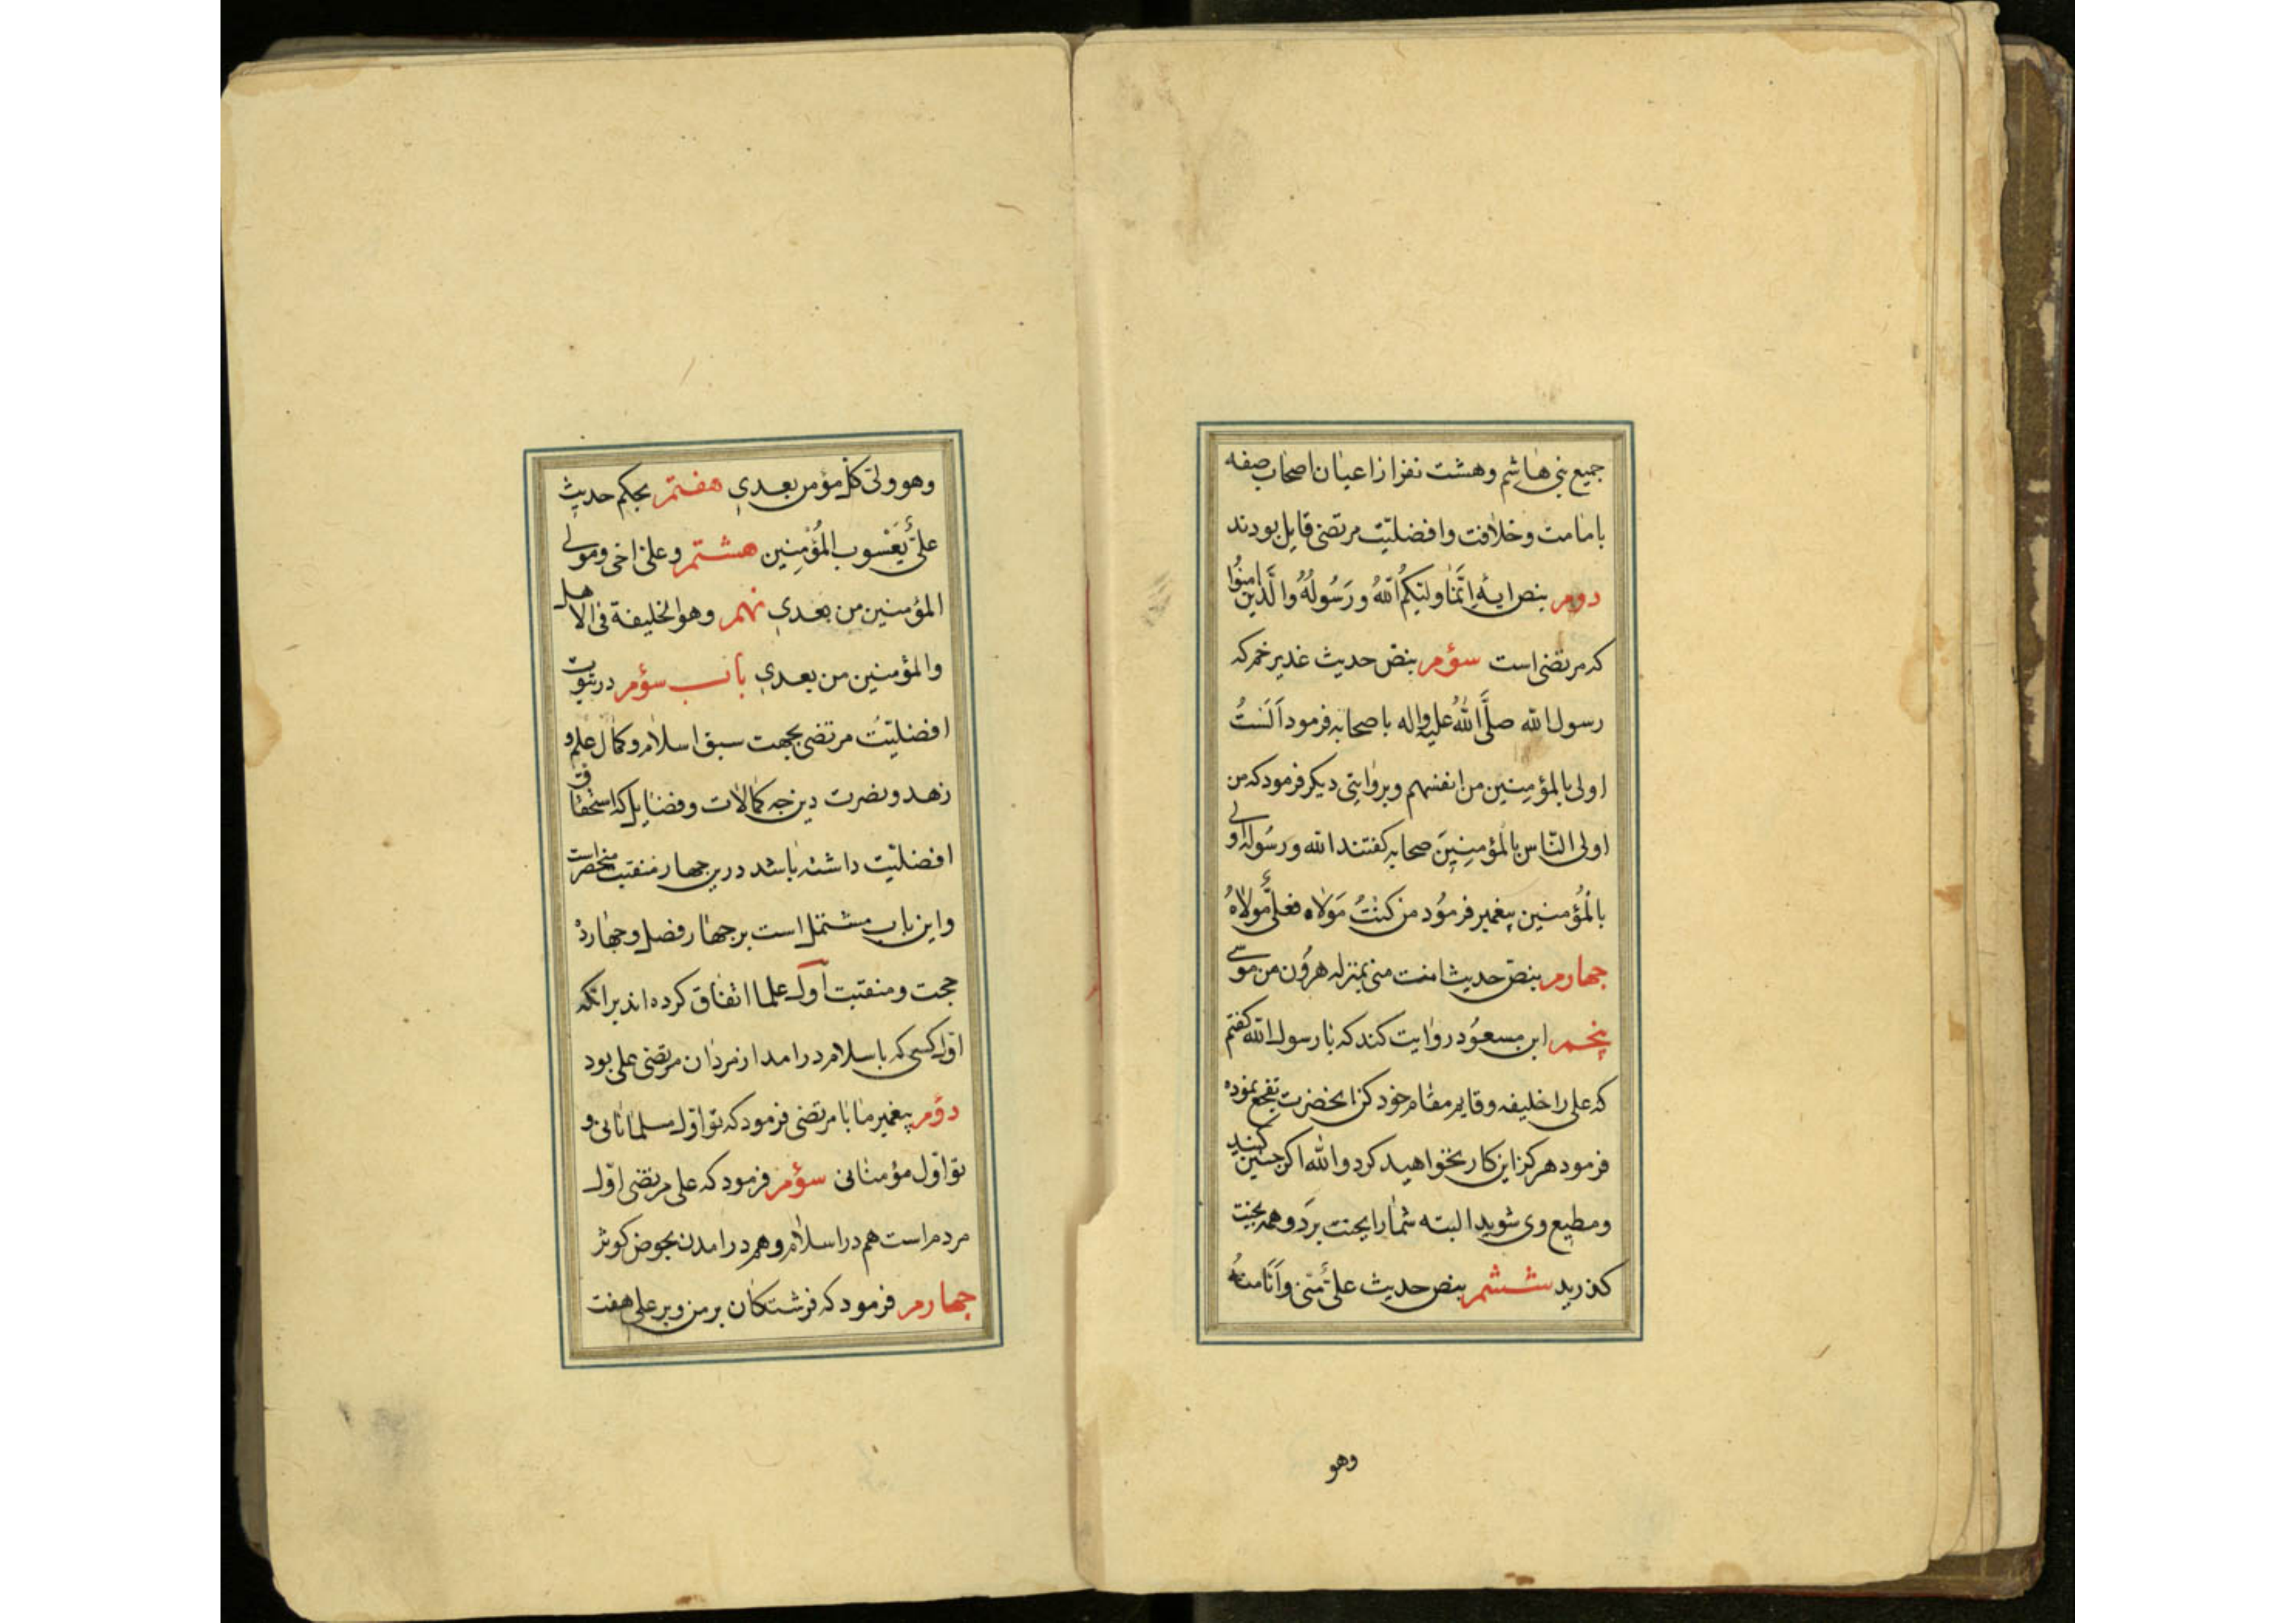 جمیع بنی هاشم و هشت نفر از اعیان اصحاب صفه
بامامت و خلافت و افضلیّت مرتضی قایل بودند
دوم بنص ایهٔ اِنَّمَا ولیّکُمُ اللّٰهُ ورَسُولُهُ والَّذین امنُوا
که مرتضی است سؤم بنصّ حدیث غدیر خم که
رسول اللّه صلَّی اللّٰهُ علیه واله با صحابه فرمود اَلَستُ
اولی بالمؤمِنین من انفسهم و بروایتی دیکر فرمود که من
اولی النّاس بالمؤمِنِینَ صحابه کفتند اللّه ورسُوله اولی
بالمُؤمنین پیغمبر فرمُود من کنتُ مَولاه فعلیٌّ مولاهُ
جهارم بنصّ حدیث انت منی بمنزله هرُون من موسی
پنجم ابن مسعُود روایت کند که با رسول اللّه کفتم
که علی را خلیفه و قایم مقام خود کن انحضرت تفجع نموده
فرمود هرکز این کار نخواهید کرد واللّٰه اکر جنین کنید
و مطیع وی شوید البته شما را بجنت برَد و همه بجنت
کذرید ششم بنص حدیث علیٌّ مّنی واَنَا منهُ
وهو
وهو ولیّ کلّ مؤمن بعدی هفتم بحکم حدیث
علیٌّ یَعْسوب المُؤْمِنِین هشتم وعلیّ اخی ومولی
المؤمنین من بعدی نهم وهو الخلیفة فی الاهل
والمؤمنین من بعدی باب سؤم در ثبوت
افضلیّت مرتضی بجهت سبق اسلام و کمال علم و
زهد و نصرت دین جه کمالات و فضایل که استحقاق
افضلیّت داشته باشد درین جهار منقبت منحصر است
و این باب مشتمل است بر جهار فصل و جهارده
حجت و منقبت اوّل علما اتفاق کرده اند بر انکه
اوّل کسی که باسلام در امد از مردان مرتضی علی بود
دوّم پیغمبر ما با مرتضی فرمود که تو اوّل مسلمانانی و
تو اوّل مؤمنانی سؤم فرمود که علی مرتضی اوّل
مردم است هم در اسلام و هم در امدن بحوض کوثر
جهارم فرمود که فرشتکان بر من و بر علی هفت